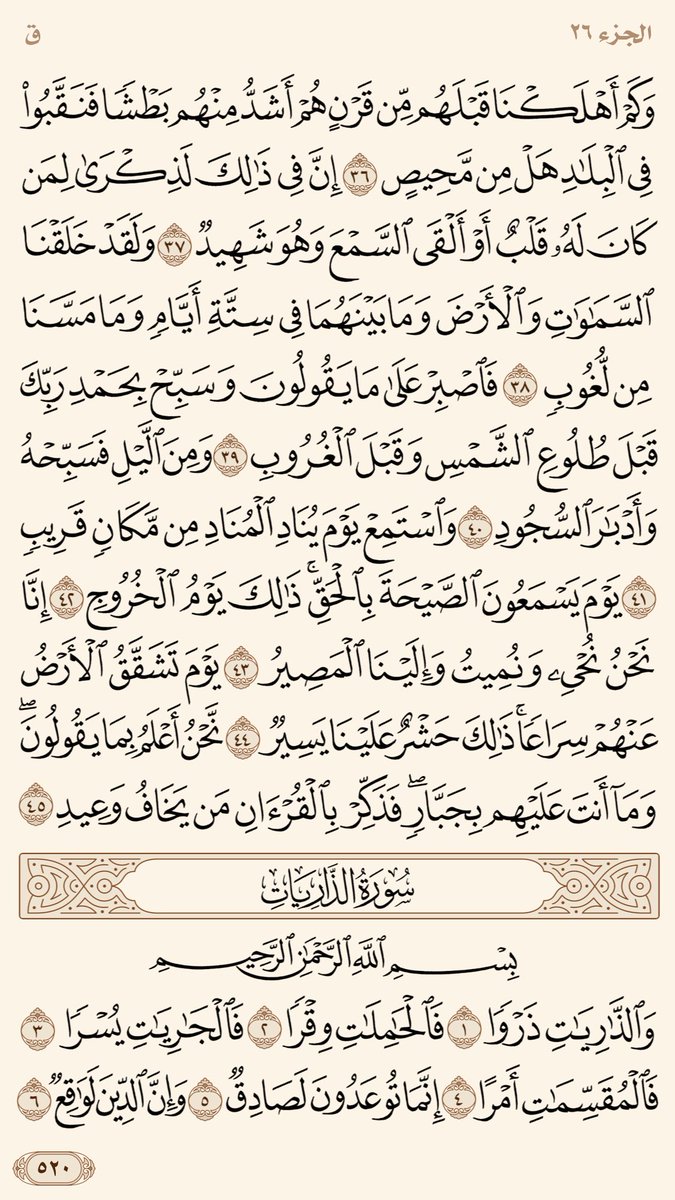 الجزء ٢٦
ق
وَكَمْ أَهْلَكْنَا قَبْلَهُم مِّن قَرْنٍ هُمْ أَشَدُّ مِنْهُم بَطْشًا فَنَقَّبُوا۟
فِى ٱلْبِلَـٰدِ هَلْ مِن مَّحِيصٍ ٣٦ إِنَّ فِى ذَٰلِكَ لَذِكْرَىٰ لِمَن
كَانَ لَهُۥ قَلْبٌ أَوْ أَلْقَى ٱلسَّمْعَ وَهُوَ شَهِيدٌ ٣٧ وَلَقَدْ خَلَقْنَا
ٱلسَّمَـٰوَٰتِ وَٱلْأَرْضَ وَمَا بَيْنَهُمَا فِى سِتَّةِ أَيَّامٍ وَمَا مَسَّنَا
مِن لُّغُوبٍ ٣٨ فَٱصْبِرْ عَلَىٰ مَا يَقُولُونَ وَسَبِّحْ بِحَمْدِ رَبِّكَ
قَبْلَ طُلُوعِ ٱلشَّمْسِ وَقَبْلَ ٱلْغُرُوبِ ٣٩ وَمِنَ ٱلَّيْلِ فَسَبِّحْهُ
وَأَدْبَـٰرَ ٱلسُّجُودِ ٤٠ وَٱسْتَمِعْ يَوْمَ يُنَادِ ٱلْمُنَادِ مِن مَّكَانٍ قَرِيبٍ
٤١ يَوْمَ يَسْمَعُونَ ٱلصَّيْحَةَ بِٱلْحَقِّ ۚ ذَٰلِكَ يَوْمُ ٱلْخُرُوجِ ٤٢ إِنَّا
نَحْنُ نُحْىِۦ وَنُمِيتُ وَإِلَيْنَا ٱلْمَصِيرُ ٤٣ يَوْمَ تَشَقَّقُ ٱلْأَرْضُ
عَنْهُمْ سِرَاعًا ۚ ذَٰلِكَ حَشْرٌ عَلَيْنَا يَسِيرٌ ٤٤ نَّحْنُ أَعْلَمُ بِمَا يَقُولُونَ ۖ
وَمَآ أَنتَ عَلَيْهِم بِجَبَّارٍ ۖ فَذَكِّرْ بِٱلْقُرْءَانِ مَن يَخَافُ وَعِيدِ ٤٥
سُورَةُ الذَّارِيَاتِ
بِسْمِ ٱللَّهِ ٱلرَّحْمَـٰنِ ٱلرَّحِيمِ
وَٱلذَّٰرِيَـٰتِ ذَرْوًا ١ فَٱلْحَـٰمِلَـٰتِ وِقْرًا ٢ فَٱلْجَـٰرِيَـٰتِ يُسْرًا ٣
فَٱلْمُقَسِّمَـٰتِ أَمْرًا ٤ إِنَّمَا تُوعَدُونَ لَصَادِقٌ ٥ وَإِنَّ ٱلدِّينَ لَوَٰقِعٌ ٦
٥٢٠